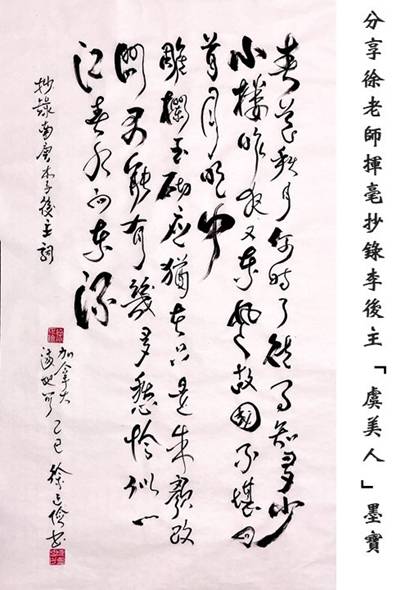 分享徐老師揮毫抄錄李後主「虞美人」墨寶
春花秋月何時了往事知多少
小樓昨夜又東風故國不堪回
首月明中
雕欄玉砌应猶在只是朱顏改
問君能有幾多愁恰似一
江春水向東流
抄錄南唐李後主詞
加拿大
滿地可 乙巳 徐 儉書